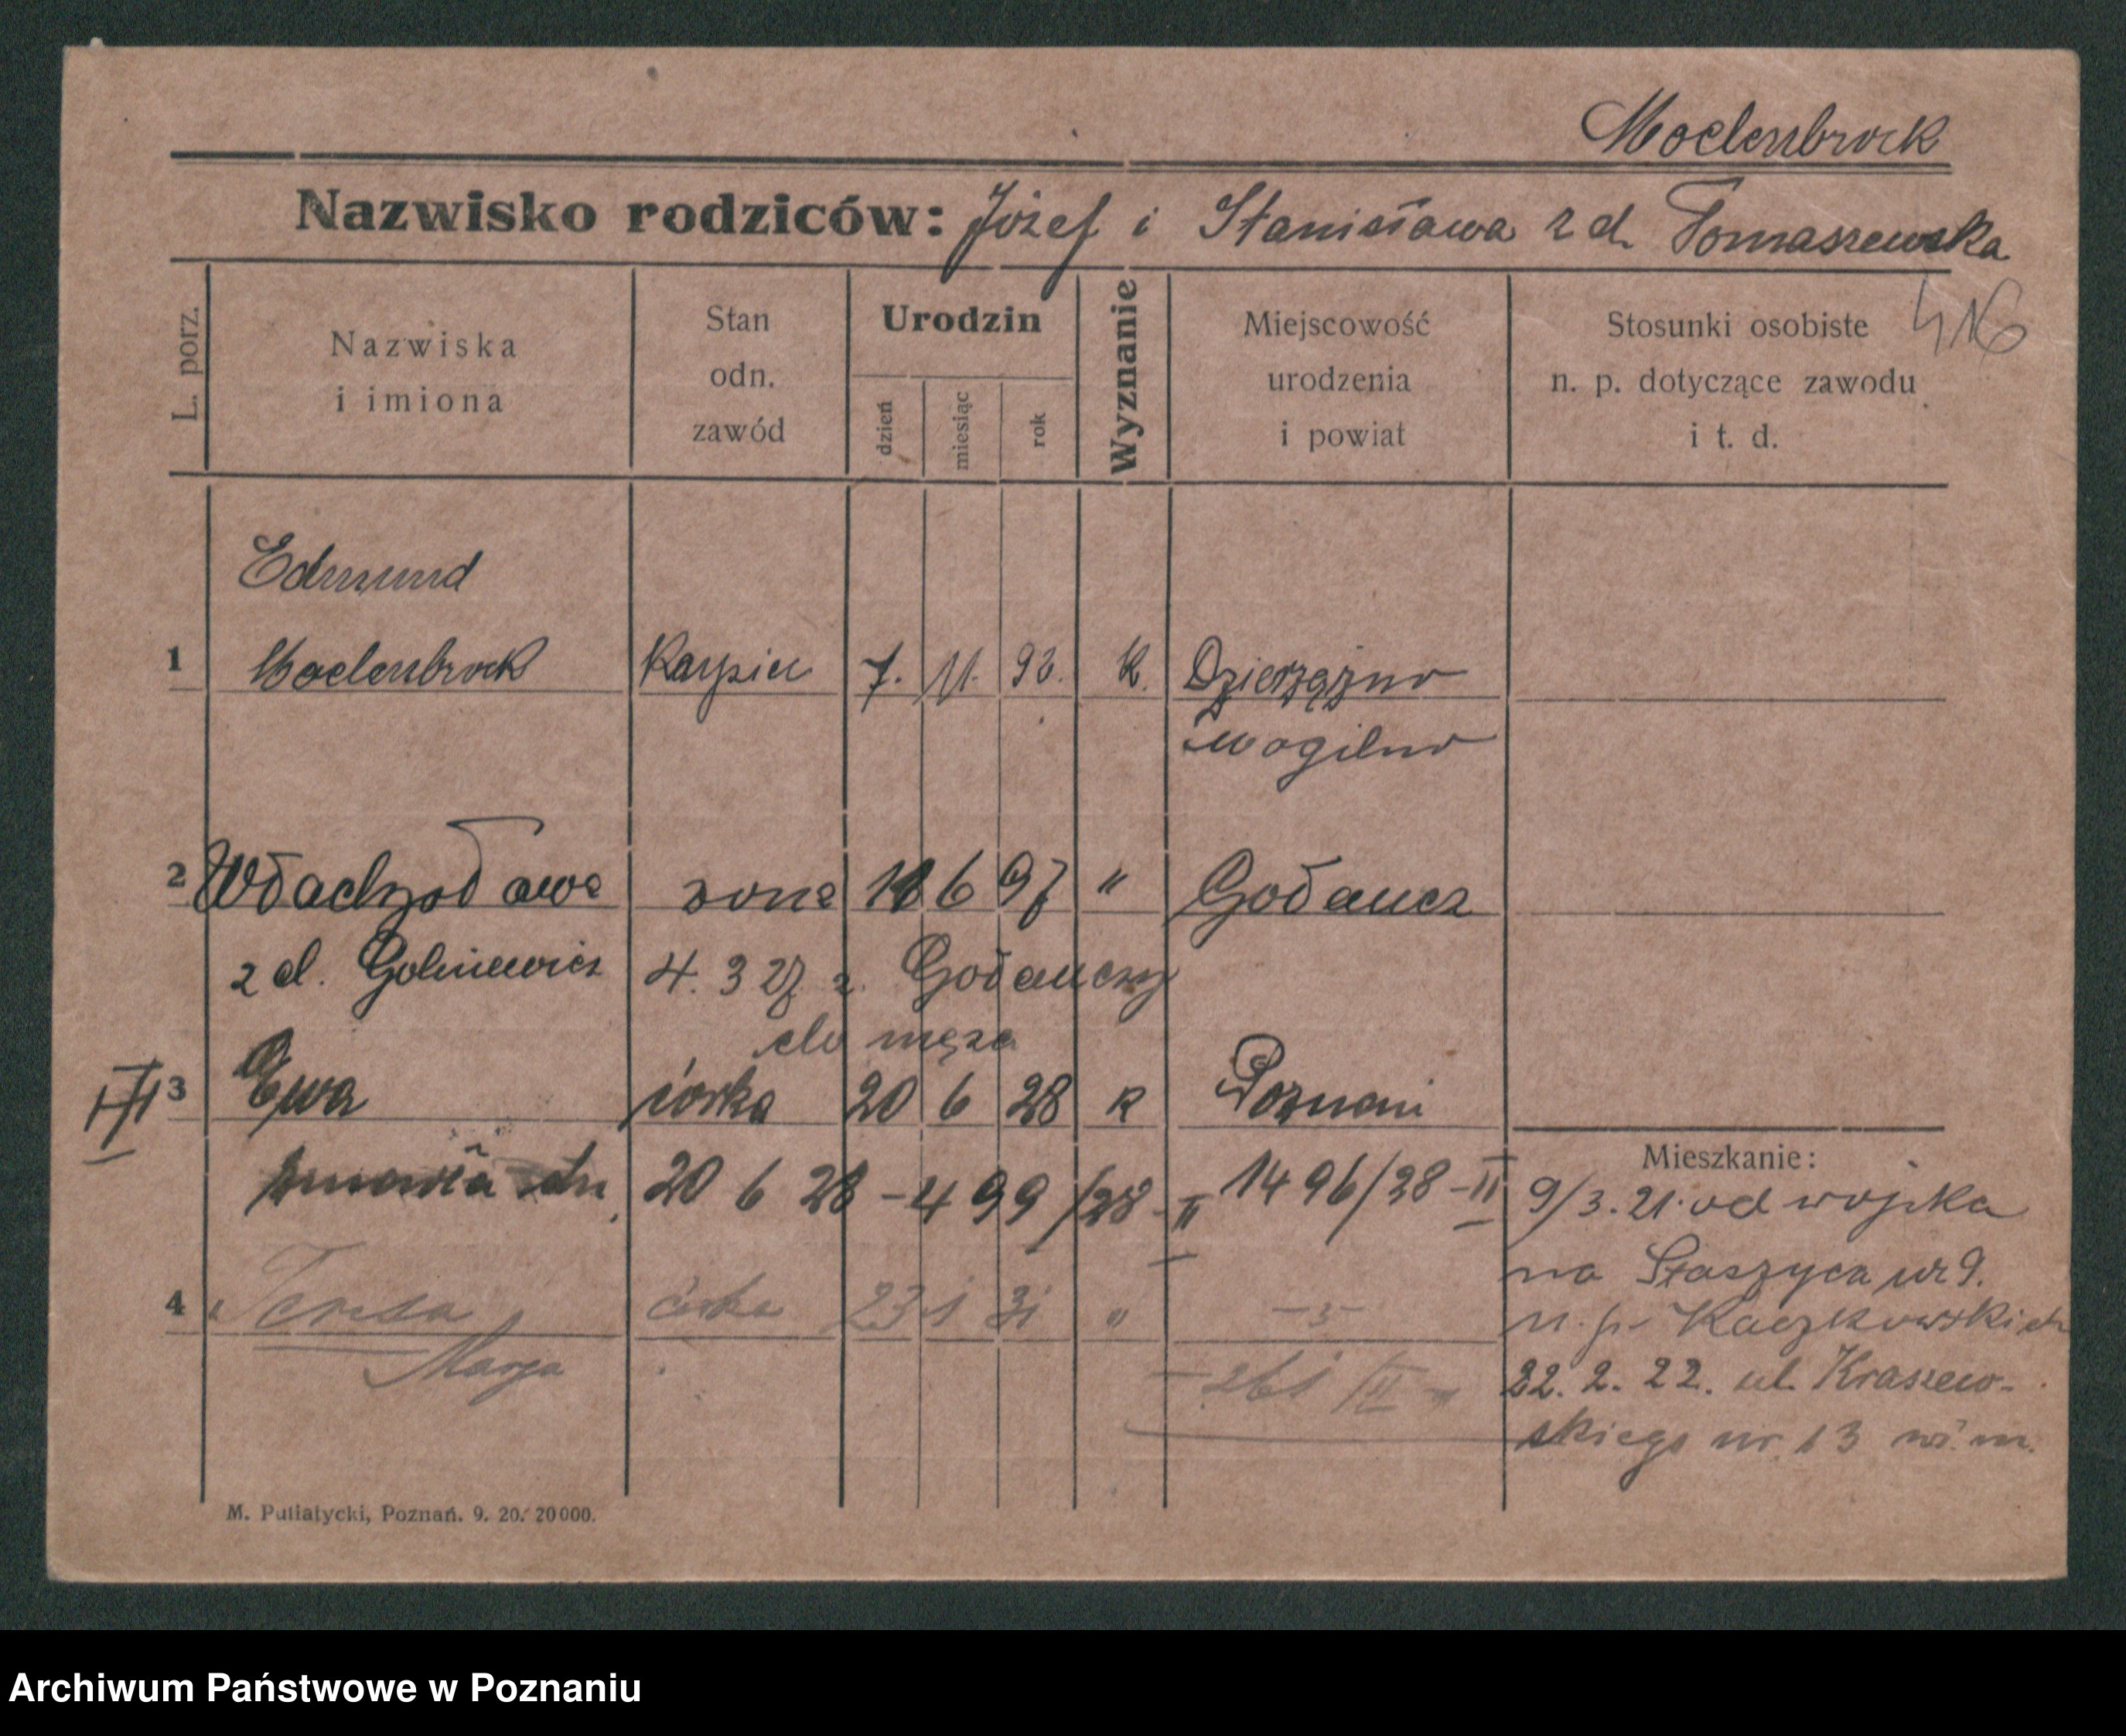 Moelenbrock
Nazwisko rodziców: Józef i Stanisława z d. Tomaszewska
416
L. porz.
Nazwiska
i imiona
Stan
odn.
zawód
Urodzin
dzień
miesiąc
rok
Wyznanie
Miejscowość
urodzenia
i powiat
Stosunki osobiste
n. p. dotyczące zawodu
i t. d.
Edmund
1 Moelenbrock kupiec 7. 11. 93. K. Dzierzążno
Mogilno
2 żona 6 97 " Gołańcz
z d. 4. 3 27 z Gołańczy
do męża
III 3 Ewa córka 20 6 28 K Poznań
zmarła dn. 20 6 28 - 499/28-II 1496/28-II
4 Teresa córka 23 1 31 "
Marja
261 /II
Mieszkanie:
9/3.21. od wojska
na Staszyca nr 9.
u. p. Kaczkowskich
22. 2. 22. ul. Kraszew-
skiego nr. 13
M. Putiatycki, Poznań. 9. 20. 20000.
Archiwum Państwowe w Poznaniu